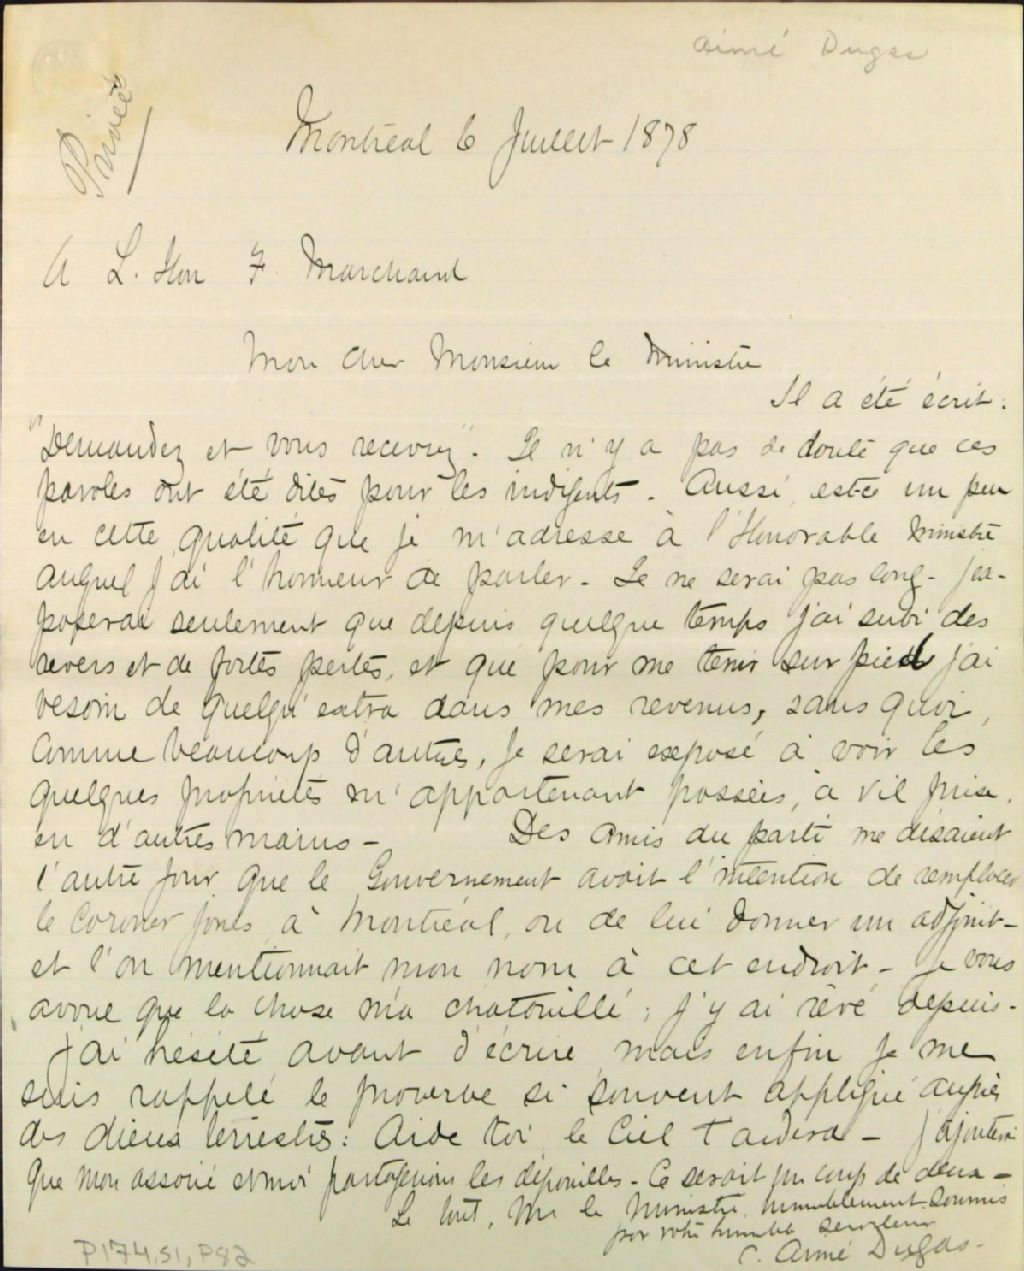 Aimé Dugas
Privée
Montréal 6 Juillet 1878
A L. Hon F. Marchand
Mon cher Monsieur le Ministre
Il a été écrit:
"Demandez et vous recevrez". Il n'y a pas de doute que ces
paroles ont été dites pour les indigents. Aussi est-ce un peu
en cette qualité que je m'adresse à l'Honorable Ministre
auquel j'ai l'honneur de parler - Je ne serai pas long - j'ex-
poserai seulement que depuis quelque temps j'ai subi des
revers et de fortes pertes, et que pour me tenir sur pied j'ai
besoin de quelqu'extra dans mes revenus, sans quoi,
comme beaucoup d'autres, je serai exposé à voir les
quelques propriétés m'appartenant passées, à vil prix,
en d'autres mains - Des amis du parti me disaient
l'autre jour que le Gouvernement avait l'intention de remplacer
le Coroner Jones à Montréal, ou de lui donner un adjoint -
et l'on mentionnait mon nom à cet endroit - Je vous
avoue que la chose m'a chatouillé; j'y ai rêvé depuis -
J'ai hésité avant d'écrire mais enfin je me
suis rappelé le proverbe si souvent appliqué auprès
des dieux terrestres: Aide toi le Ciel t'aidera - J'ajouterai
que mon associé et moi partagerions les dépouilles - Ce serait un coup de deux -
Le tout, Mr le Ministre, humblement soumis
par votre humble serviteur
C. Aimé Dugas -
P174,S1,P82